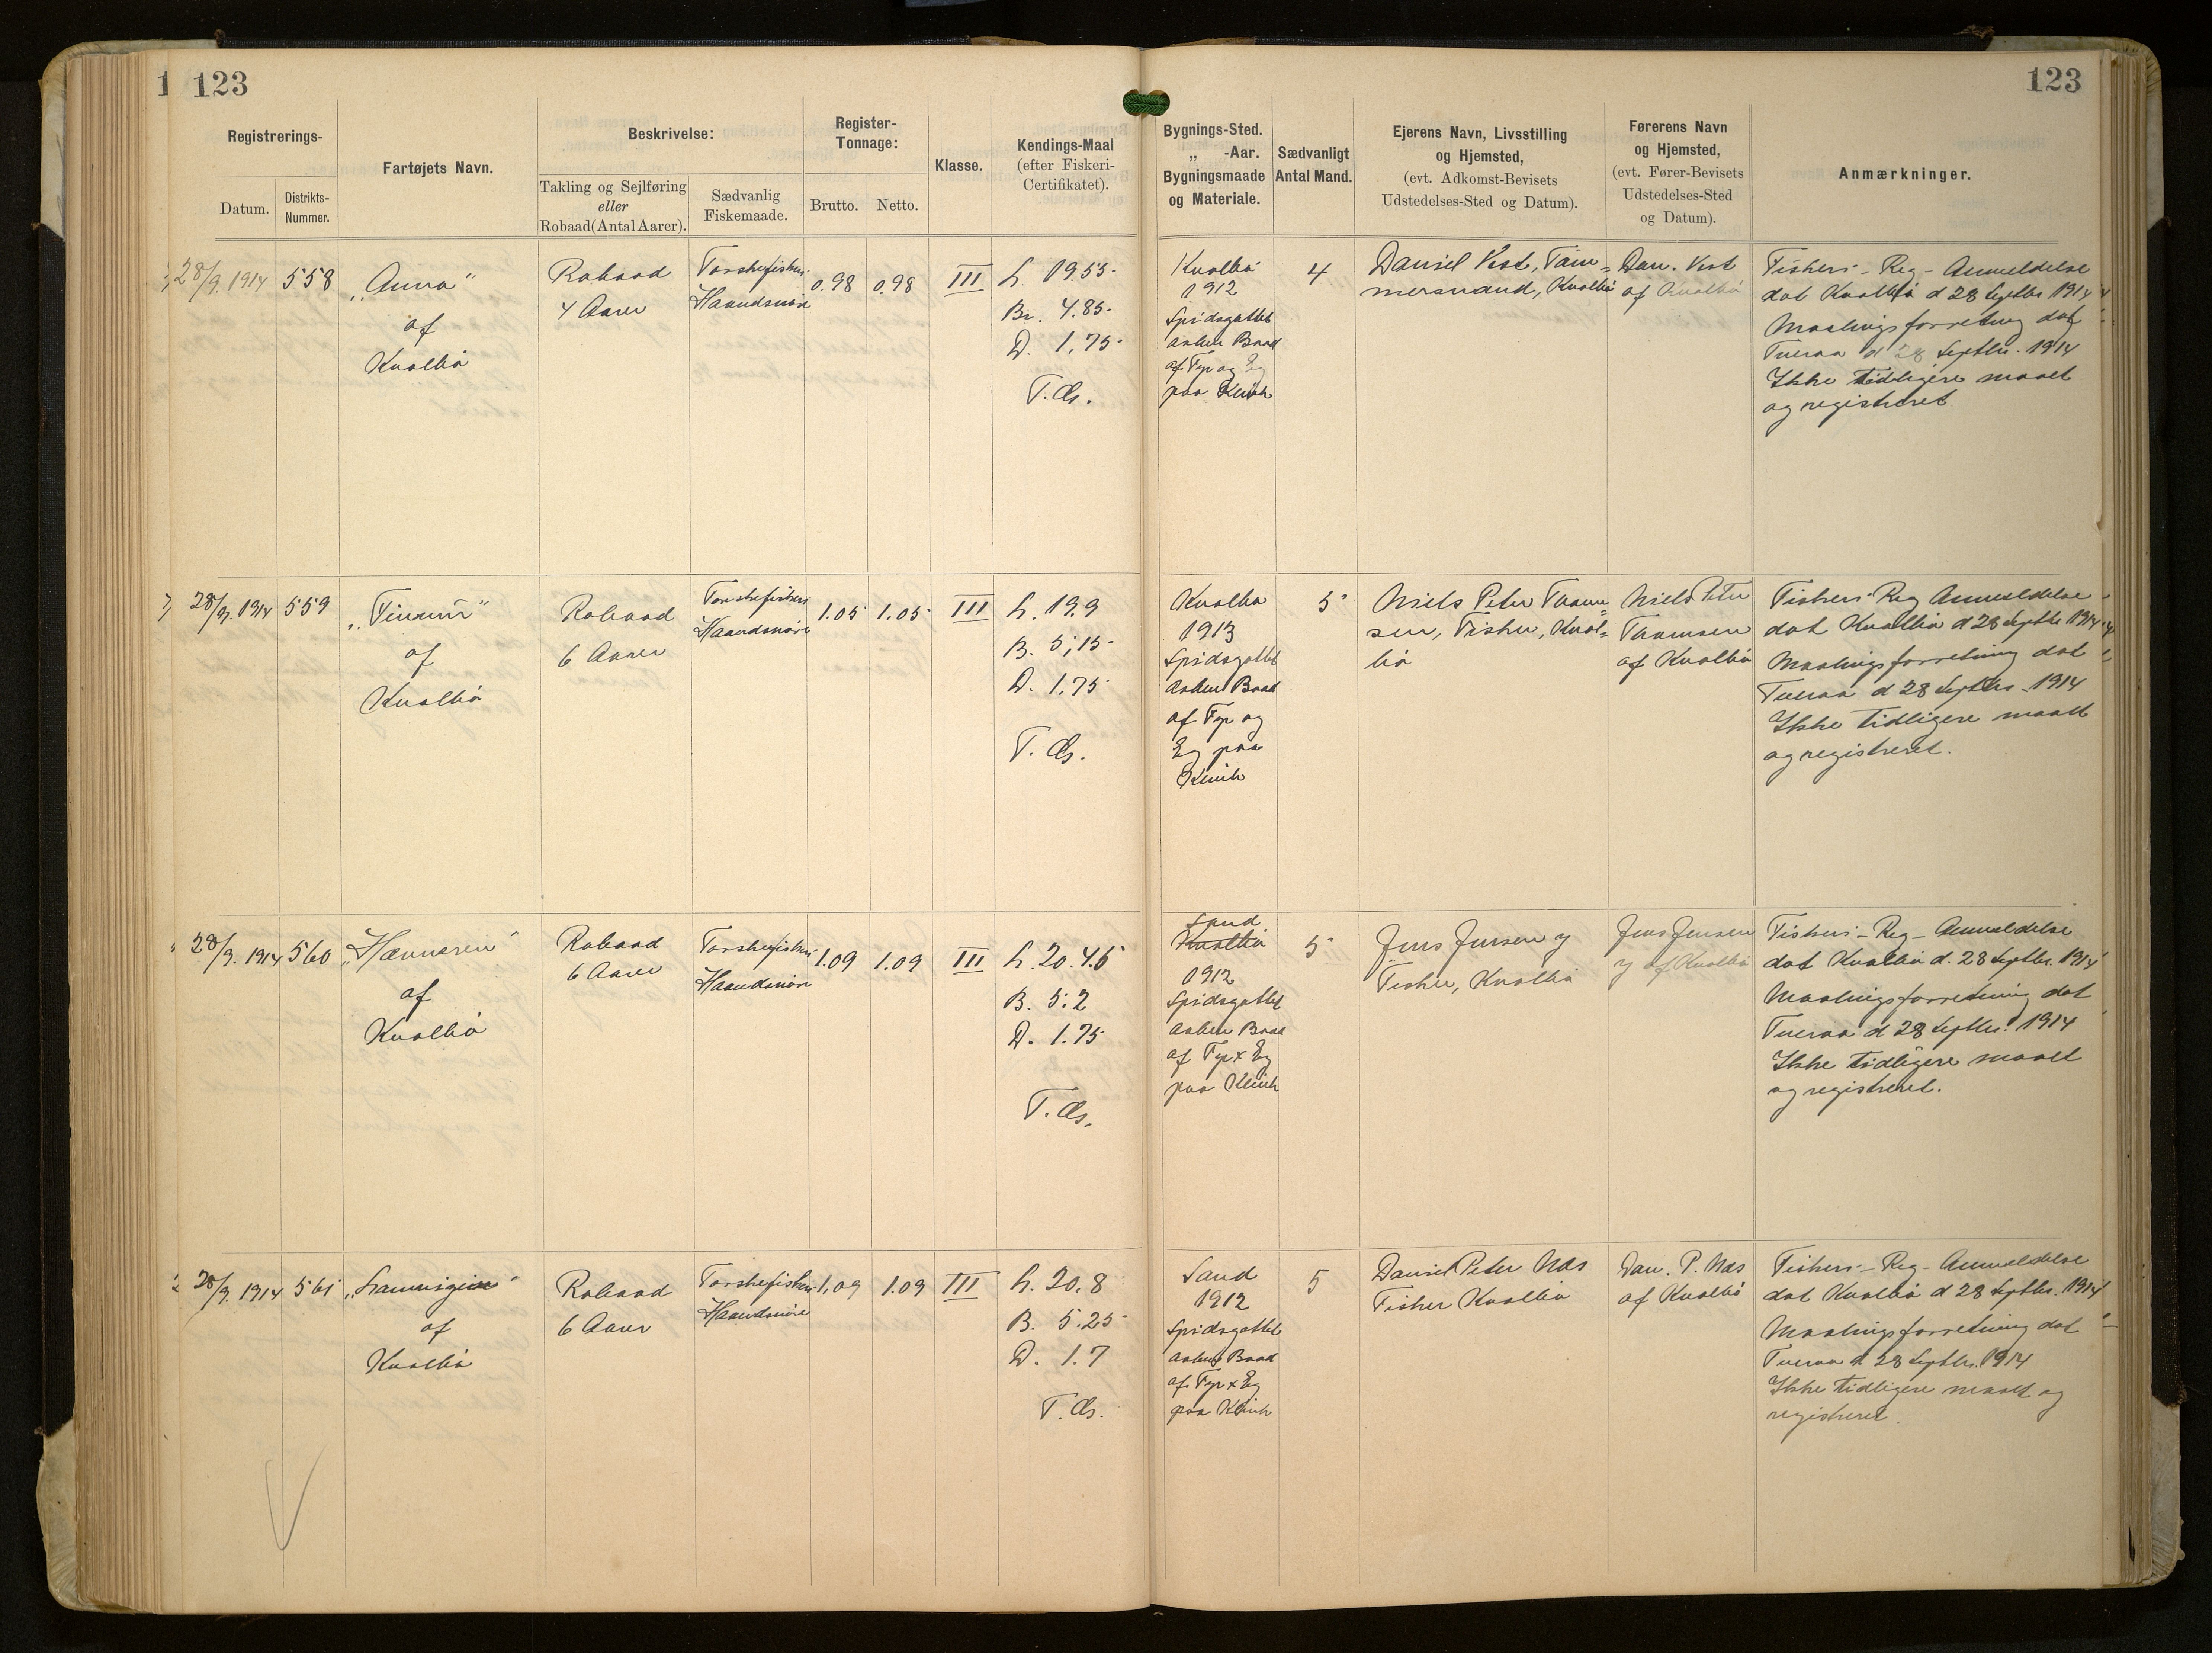 123
123
Registrerings-
Datum.
Distrikts-
Nummer.
Fartøjets Navn.
Beskrivelse:
Takling og Sejlføring
eller
Robaad (Antal Aarer).
Sædvanlig
Fiskemaade.
Register-
Tonnage:
Brutto.
Netto.
Klasse.
Kendings-Maal
(efter Fiskeri-
Certifikatet).
Bygnings-Sted.
„ -Aar.
Bygningsmaade
og Materiale.
Sædvanligt
Antal Mand.
Ejerens Navn, Livsstilling
og Hjemsted,
(evt. Adkomst-Bevisets
Udstedelses-Sted og Datum).
Førerens Navn
og Hjemsted,
(evt. Fører-Bevisets
Udstedelses-Sted
og Datum).
Anmærkninger.
28/9. 1914
558
„Anna"
af
Kvalbö
Robaad
4 Aarer
Torskefiskeri
Haandsnöre
0.98
0.98
III
L. 19.55
Br. 4.85
D. 1.75
T. Gs.
Kvalbö
1912
Spidsgattet
aaben Baad
af Fyr og Eg
paa Klink
4
Daniel Vest, Töm=
mermand, Kvalbö
Dan. Vest
af Kvalbö
Fiskeri-Reg-Anmeldelse
dat Kvalbö d 28 Septbr 1914
Maalingsforretning dat
Tveraa d 28 Septbr. 1914
Ikke tidligere maalt
og registreret
28/9. 1914
559
af
Kvalbö
Robaad
6 Aarer
Torskefiskeri
Haandsnöre
1.05
1.05
III
L. 19.9
B. 5,15
D. 1.75
T. Gs.
Kvalbö
1913
Spidsgattet
Aaben Baad
af Fyr og
Eg paa
Klink
5
Niels Peter Thom=
sen, Fisker, Kval=
bö
Niels Peter
Thomsen
af Kvalbö
Fiskeri-Reg Anmeldelse
dat Kvalbö d 28 Septbr 1914
Maalingsforretning dat
Tveraa d 28 Septbr. 1914
Ikke tidligere maalt
og registreret.
28/9. 1914
560
af
Kvalbö
Robaad
6 Aarer
Torskefiskeri
Haandsnöre
1.09
1.09
III
L. 20.45
B. 5.2
D. 1.75
T. Gs.
Sand
Kvalbö
1912
Spidsgattet
aaben Baad
af Fyr x Eg
paa Klink
5
Jens Jensen y
Fisker, Kvalbö
Jens Jensen
y af Kvalbö
Fiskeri-Reg-Anmeldelse
dat Kvalbö d. 28 Septbr. 1914
Maalingsforretning dat
Tveraa d 28 Septbr. 1914
Ikke tidligere maalt
og registreret.
28/9. 1914
561
af
Kvalbö
Robaad
6 Aarer
Torskefiskeri
Haandsnöre
1.09
1.09
III
L. 20.8
B. 5.25
D. 1.7
T. Gs.
Sand
1912
Spidsgattet
aaben Baad
af Fyr x Eg
paa Klink
5
Daniel Peter Næs
Fisker Kvalbö
Dan. P. Næs
af Kvalbö
Fiskeri-Reg-Anmeldelse
dat Kvalbö d 28 Septbr. 1914
Maalingsforretning dat
Tveraa d 28 Septbr. 1914
Ikke tidligere maalt og
registreret.